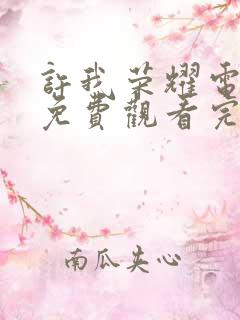 許我荣耀電
免費觀看完
南瓜夹心